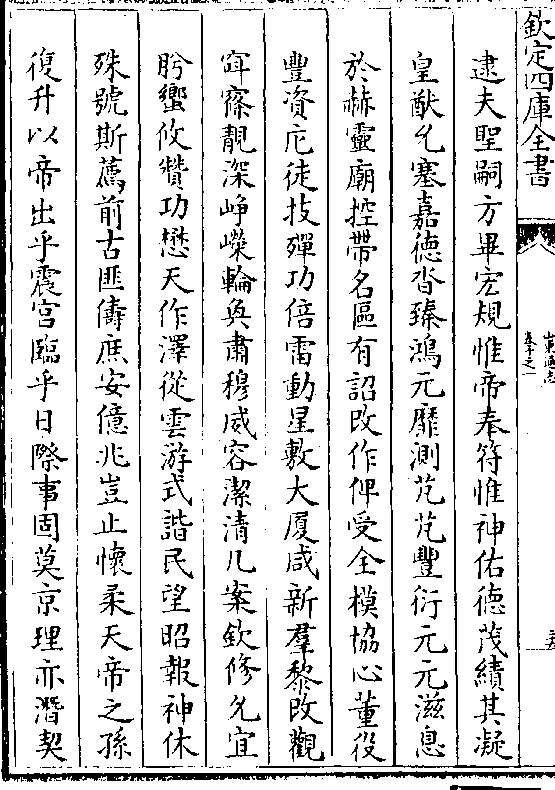 欽定四庫全書
逮夫聖嗣方畢宏規惟帝奉符惟神佑德茂績其凝
皇猷允塞嘉德沓臻鴻元靡測芃芃豐衍元元滋息
於赫靈廟控帶名區有詔改作俾受全模協心董役
豐資庀徒技殫功倍雷動星敷大厦咸新羣黎改觀
窐寥靚深崢嶸輪奐肅穆威容潔清几案欽修允宜
肸蠁攸贊功懋天作澤從雲游式諧民望昭報神休
殊號斯薦前古匪儔庶安億兆豈止懷柔天帝之孫
復升以帝出乎震宮臨乎日際事固莫京理亦潛契